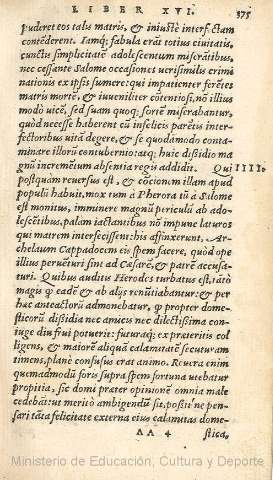 LIBER XVI. 375
puderet eos talis matris, & iniustè interfectam
contēderent. Iamq; fabula erat totius ciuitatis,
cunctis simplicitatē adolescentum miserātibus,
nec cessante Salome occasiones verisimiles crimi
nationis ex ipsis sumere: qui impatienter ferētes
matris mortē, & iuueniliter cōtentiosi, nō illius
modò vicē, sed suam quoq; sortē miserabantur,
quòd necesse haberent cū infelicis parētis interfe
ctoribus vitā degere, & se quodāmodo contami
narier illorū contubernio: auq; huic dissidio ma
gnū incremētum absentia regis addidit. Qui IIII.
postquàm reuersus est, & cōcionem illam apud
populū habuit, mox tum à Pherora tū à Salome
est monitus, imminere magnū periculū ab ado-
lescētibus, palàm iactantibus nō impune laturos
qui matrem interfecissent: his affinxerunt, Ar-
chelaum Cappadocem eis spem facere, quòd ope
illius peruēturi sint ad Cæsarē, & patrē accusa-
turi. Quibus auditis Herodes turbatus est, tātò
magis quòd eadē & ab alijs renūtiabantur: & per
hæc anteactorū admonebatur, quòd propter dome-
sticorū dissidia nec amicis nec dilectissima con-
iuge diu frui potuerit: futuraq; ex præteritis col
ligens, & maiorē aliquā calamitatē secuturam
timens, planè confusus erat animo. Reuera enim
quemadmodū foris supra spem fortuna vtebatur
propitia, sic domi præter opinionē omnia malè
cedebāt: vt meritò ambigendū sit, possit ne pen-
sari tāta felicitate externa eius calamitas dome-
AA 4 stica,
Ministerio de Educación, Cultura y Deporte